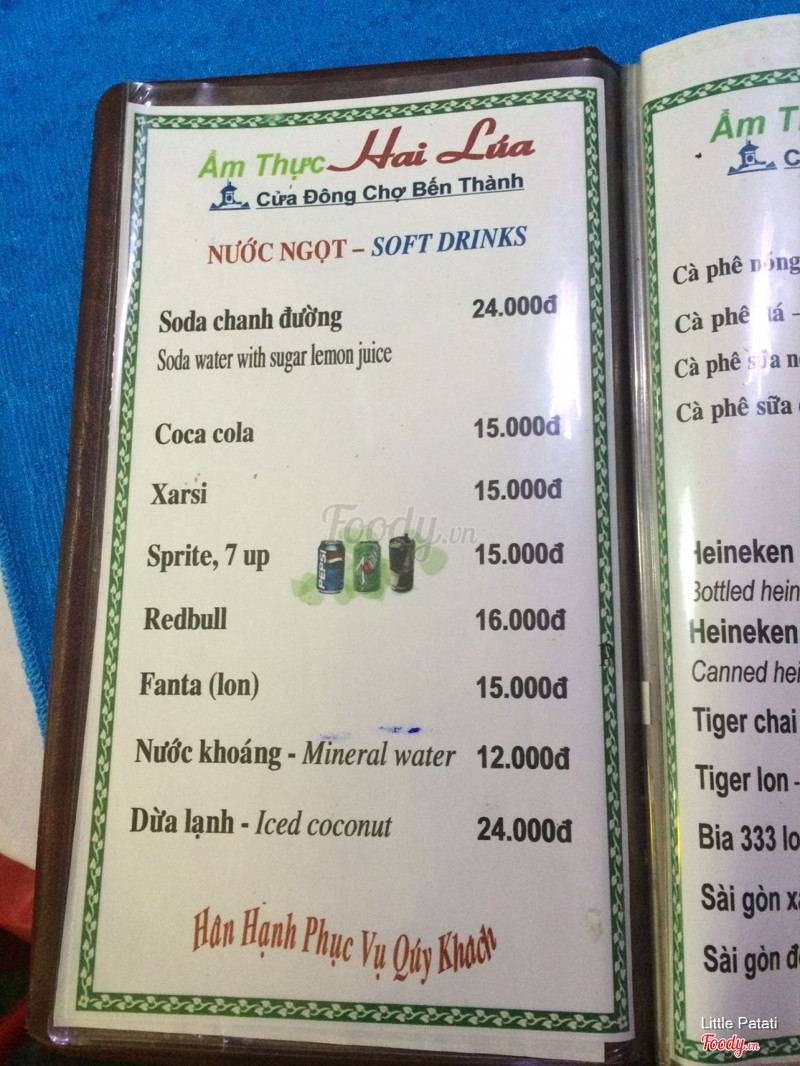 Ẩm Thực Hai Lúa
Cửa Đông Chợ Bến Thành
NƯỚC NGỌT – SOFT DRINKS
Soda chanh đường 24.000đ
Soda water with sugar lemon juice
Coca cola 15.000đ
Xarsi 15.000đ
Foody.vn
Sprite, 7 up 15.000đ
PEPSI
Redbull 16.000đ
Fanta (lon) 15.000đ
Nước khoáng - Mineral water 12.000đ
Dừa lạnh - Iced coconut 24.000đ
Hân Hạnh Phục Vụ Qúy Khách
Ẩm
Cà phê nóng
Cà phê đá –
Cà phê sữa
Cà phê sữa
Heineken
Bottled
Heineken
Canned
Tiger chai
Tiger lon -
Bia 333
Sài gòn
Sài gòn
Little Patati
Foody.vn